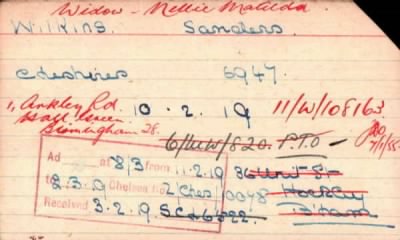 Widow - Nellie Matilda.
Wilkins. Sanders.
Cheshires 6947.
Ankley Rd. 10 . 2 . 19 11/W/108163
Hall Green
Birmingham 28. 6/MW/820. P.T.O
Ad at 8/3 from 11.2.19 36
to 8.3.9 Chelsea No 2 Ches 10048 Hockley
Received 3.2.9. B'ham